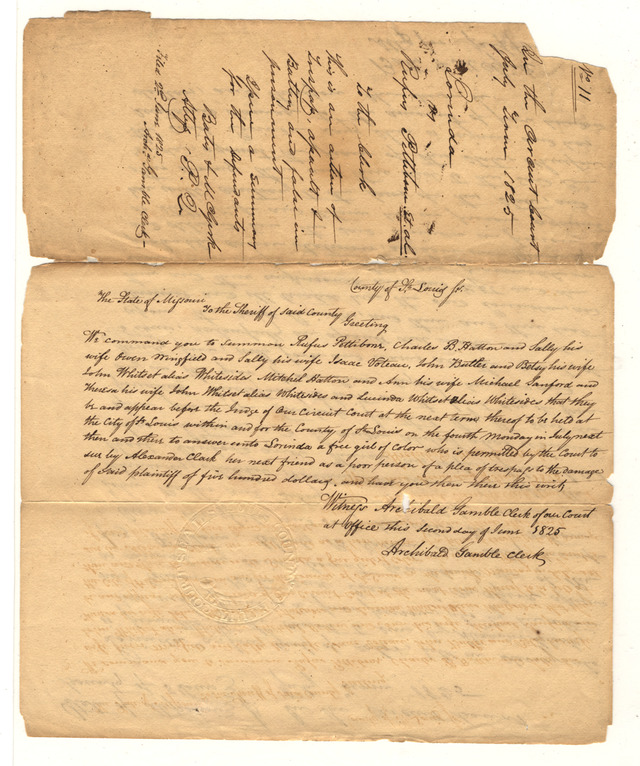 No 11
In the Circuit Court
July Term 1825
Lorinda
vs
Rufus Pettibone & al
To the Clerk
This is an action of
Trespass assault &
Battery and false im
prisonment
Issue a Summons
for the Defendants
Bates &
Attys P. Q.
Filed 2d June 1825
Archd Gamble Clerk
County of St Louis Sc.
The State of Missouri
To the Sheriff of said County
Greeting
We command you to summon Rufus Pettibone, Charles B. Hatton and Sally his
wife Owen Wingfield and Sally his wife Isaac Voteau, John Butler and Betsy his wife
John Whitset alias Whitesides Mitchel Hatton and Ann his wife Michael Sanford and
Theresa his wife John Whitset alias Whitesides and Lucinda Whitset alias Whitesides that they
be and appear before the Judge of Our Circuit Court at the next term thereof to be held at
the City of St Louis within and for the County of St Louis on the fourth Monday in July next
then and there to answer unto Lorinda a free girl of color who is permitted by the Court to
sue by Alexander Clark her next friend as a poor person of a plea of trespass to the damage
of said plaintiff of five hundred dollars, and have you then there this writ,
Witness Archibald Gamble Clerk of our Court
at office this Second day of June 1825
Archibald Gamble Clerk